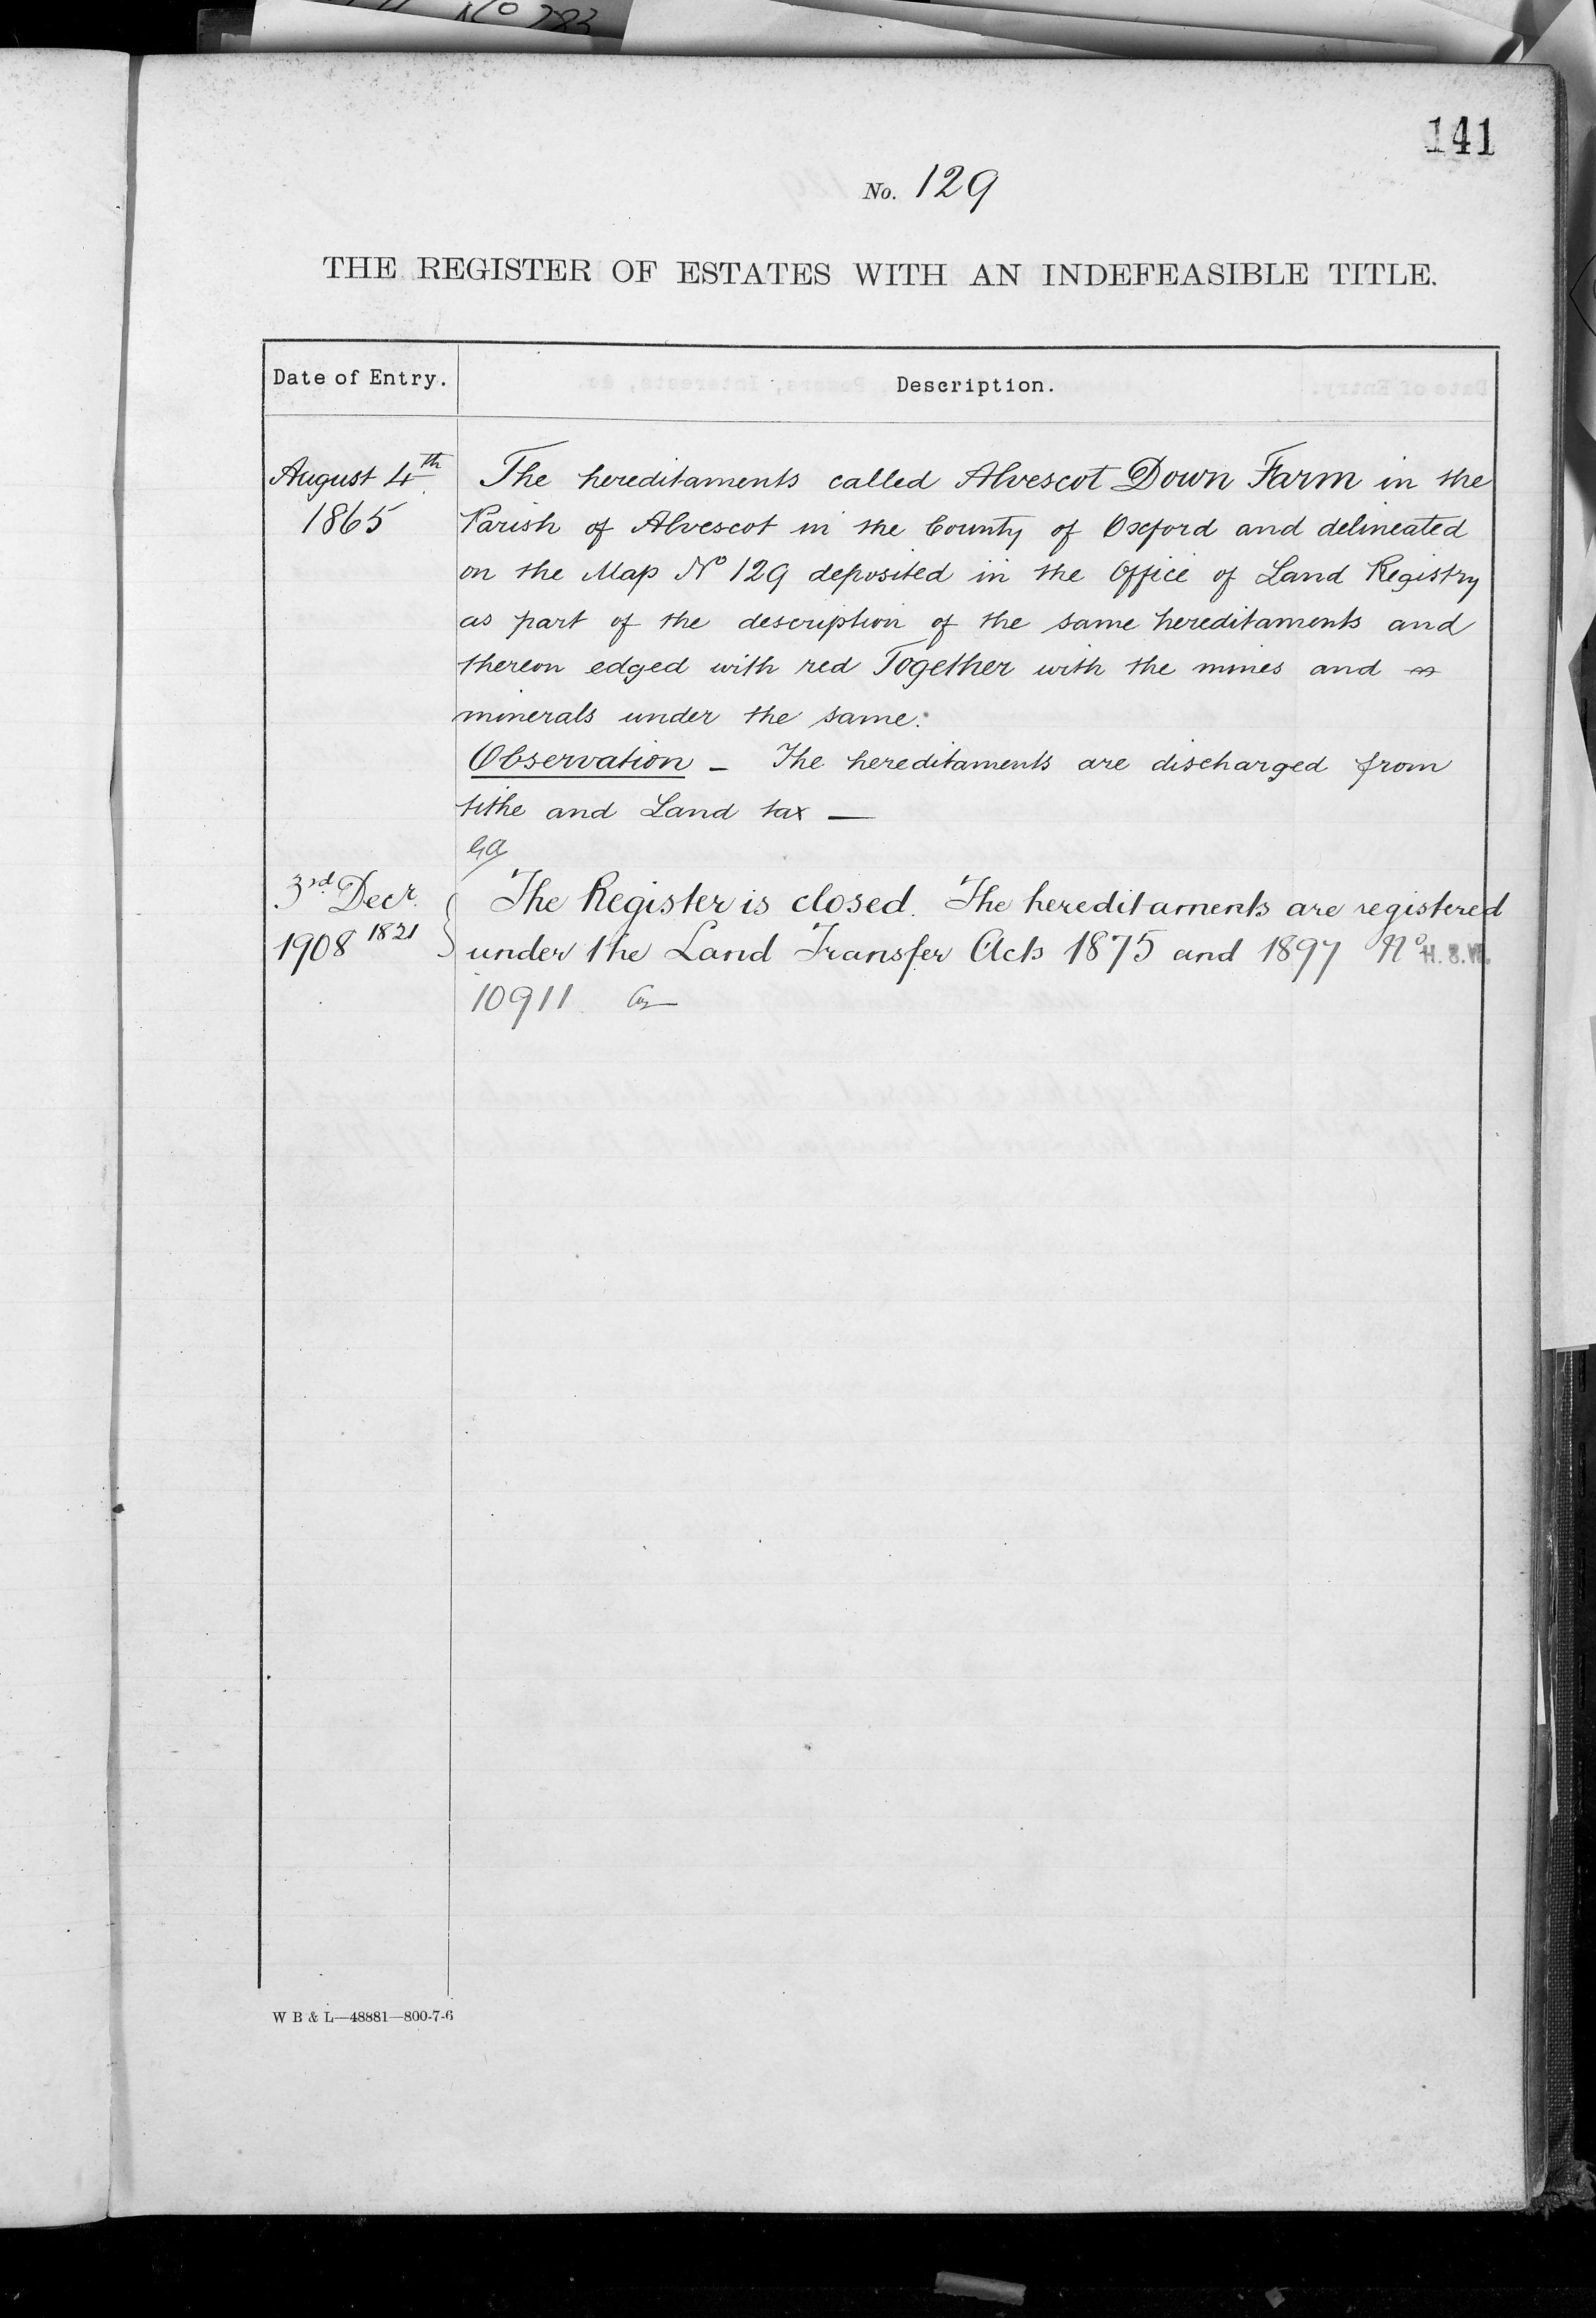 141
No. 129
THE REGISTER OF ESTATES WITH AN INDEFEASIBLE TITLE.
Date of Entry.
Description.
August 4th
1865
The hereditaments called Alvescot Down Farm in the
Parish of Alvescot in the County of Oxford and delineated
on the Map No 129 deposited in the Office of Land Registry
as part of the description of the same hereditaments and
thereon edged with red Together with the mines and
minerals under the same.
Observation – The hereditaments are discharged from
tithe and Land tax —
3rd Decr.
1908 1821
The Register is closed. The hereditaments are registered
under the Land Transfer Acts 1875 and 1897 No
10911
W B & L—48881—800-7-6